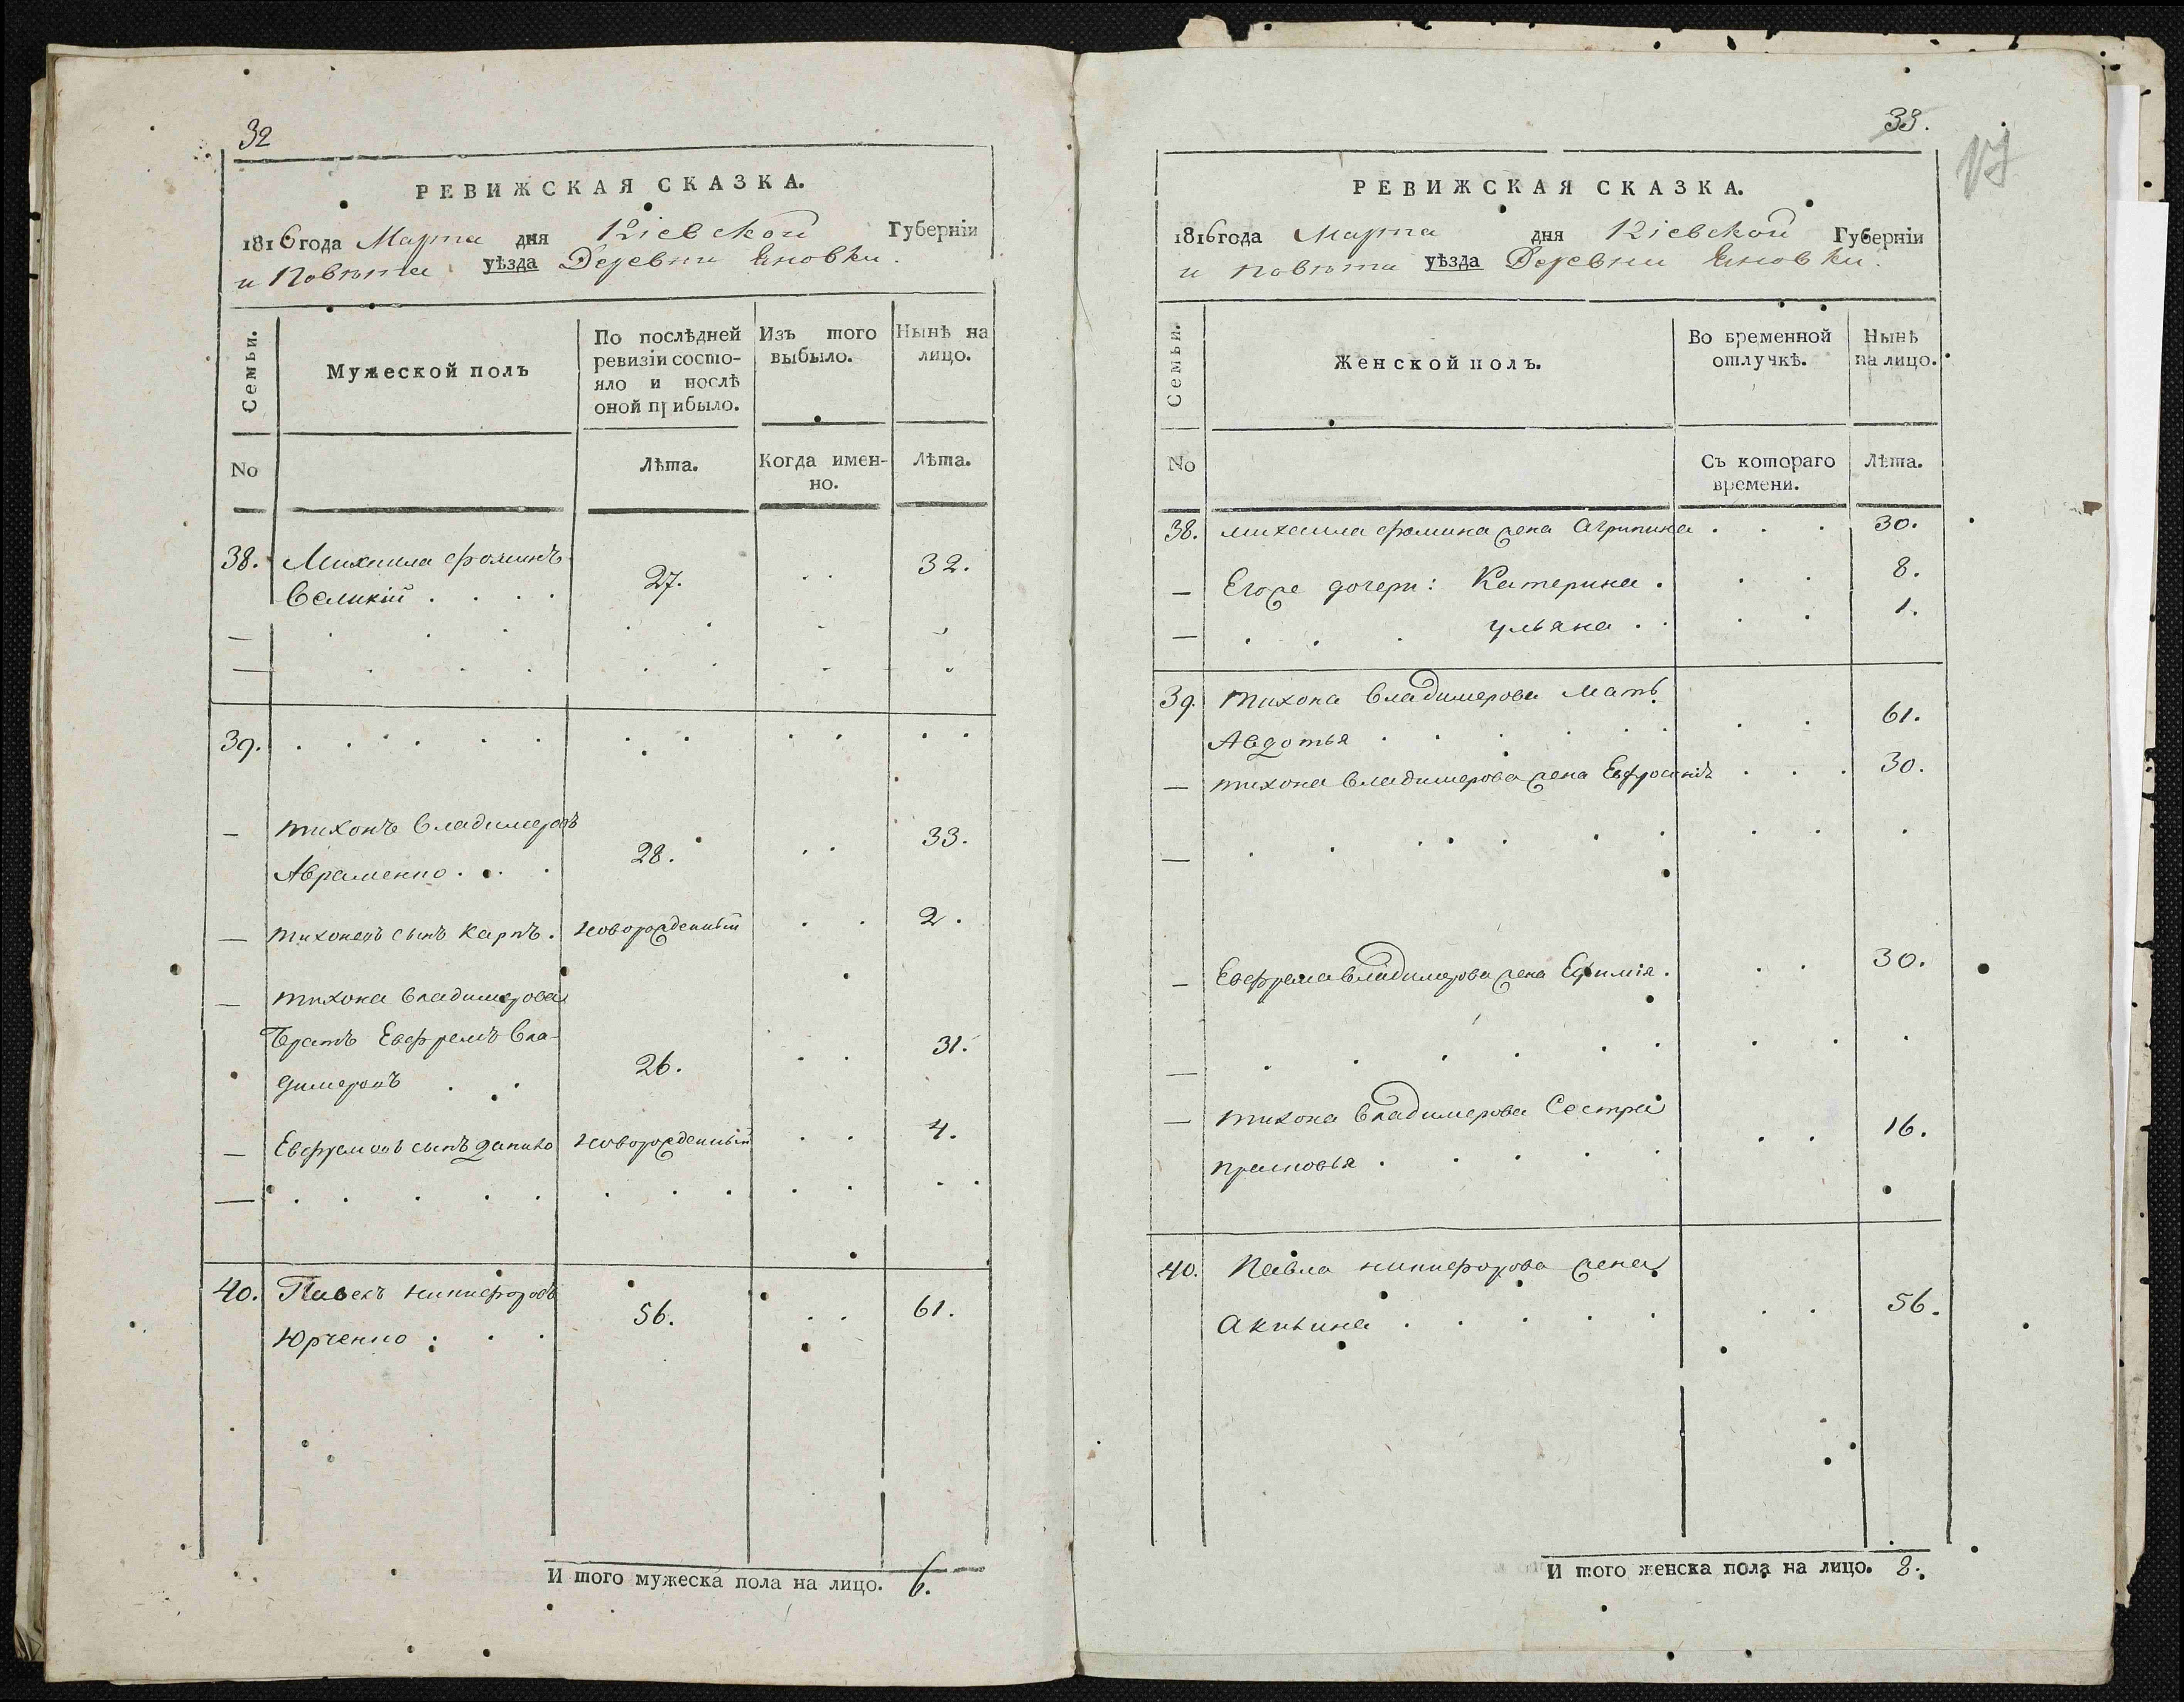 32
РЕВИЖСКАЯ СКАЗКА.
1816 года Марта дня Кіевской Губерніи
и Повѣта уѣзда Деревни Яновки.
Семьи.
Мужеской полъ
По послѣдней ревизіи состо-
яло и послѣ оной прибыло.
Изъ того выбыло.
Нынѣ на лицо.
No
Лѣта.
Когда имен-
но.
Лѣта.
38. Михаила Фоминъ
Великій . . . . 27. . . 32.
39.
— Тихонъ Владимеровъ
Авраменко . . . 28. . . 33.
— Тихоновъ сынъ Карпъ. новорожденный . . 2.
— Тихона Владимерова
Братъ Евфремъ Вла-
димеровъ . . 26. . . 31.
— Евфремовъ сынъ Данило новорожденный . . 4.
40. Павелъ Никифоровъ
Юрченко . . . 56. . . 61.
И того мужеска пола на лицо. 6.
33.
17
РЕВИЖСКАЯ СКАЗКА.
1816 года Марта дня Кіевской Губерніи
и Повѣта уѣзда Деревни Яновки.
Семьи.
Женской полъ.
Во временной отлучкѣ.
Нынѣ на лицо.
No
Съ котораго времени.
Лѣта.
38. Михаила Фомина жена Агрипина . . . 30.
— Егоже дочери: Катерина . . . 8.
— . . . Ульяна . . . . 1.
39. Тихона Владимерова Мать
Авдотья . . . . . . 61.
— Тихона Владимерова жена Евфросинія . . . 30.
— Евфрема Владимерова жена Ефимія . . . 30.
— Тихона Владимерова Сестра
Прасковья . . . . . . 16.
40. Павла Никифорова жена
Акилина . . . . . . 56.
И того женска пола на лицо. 8.